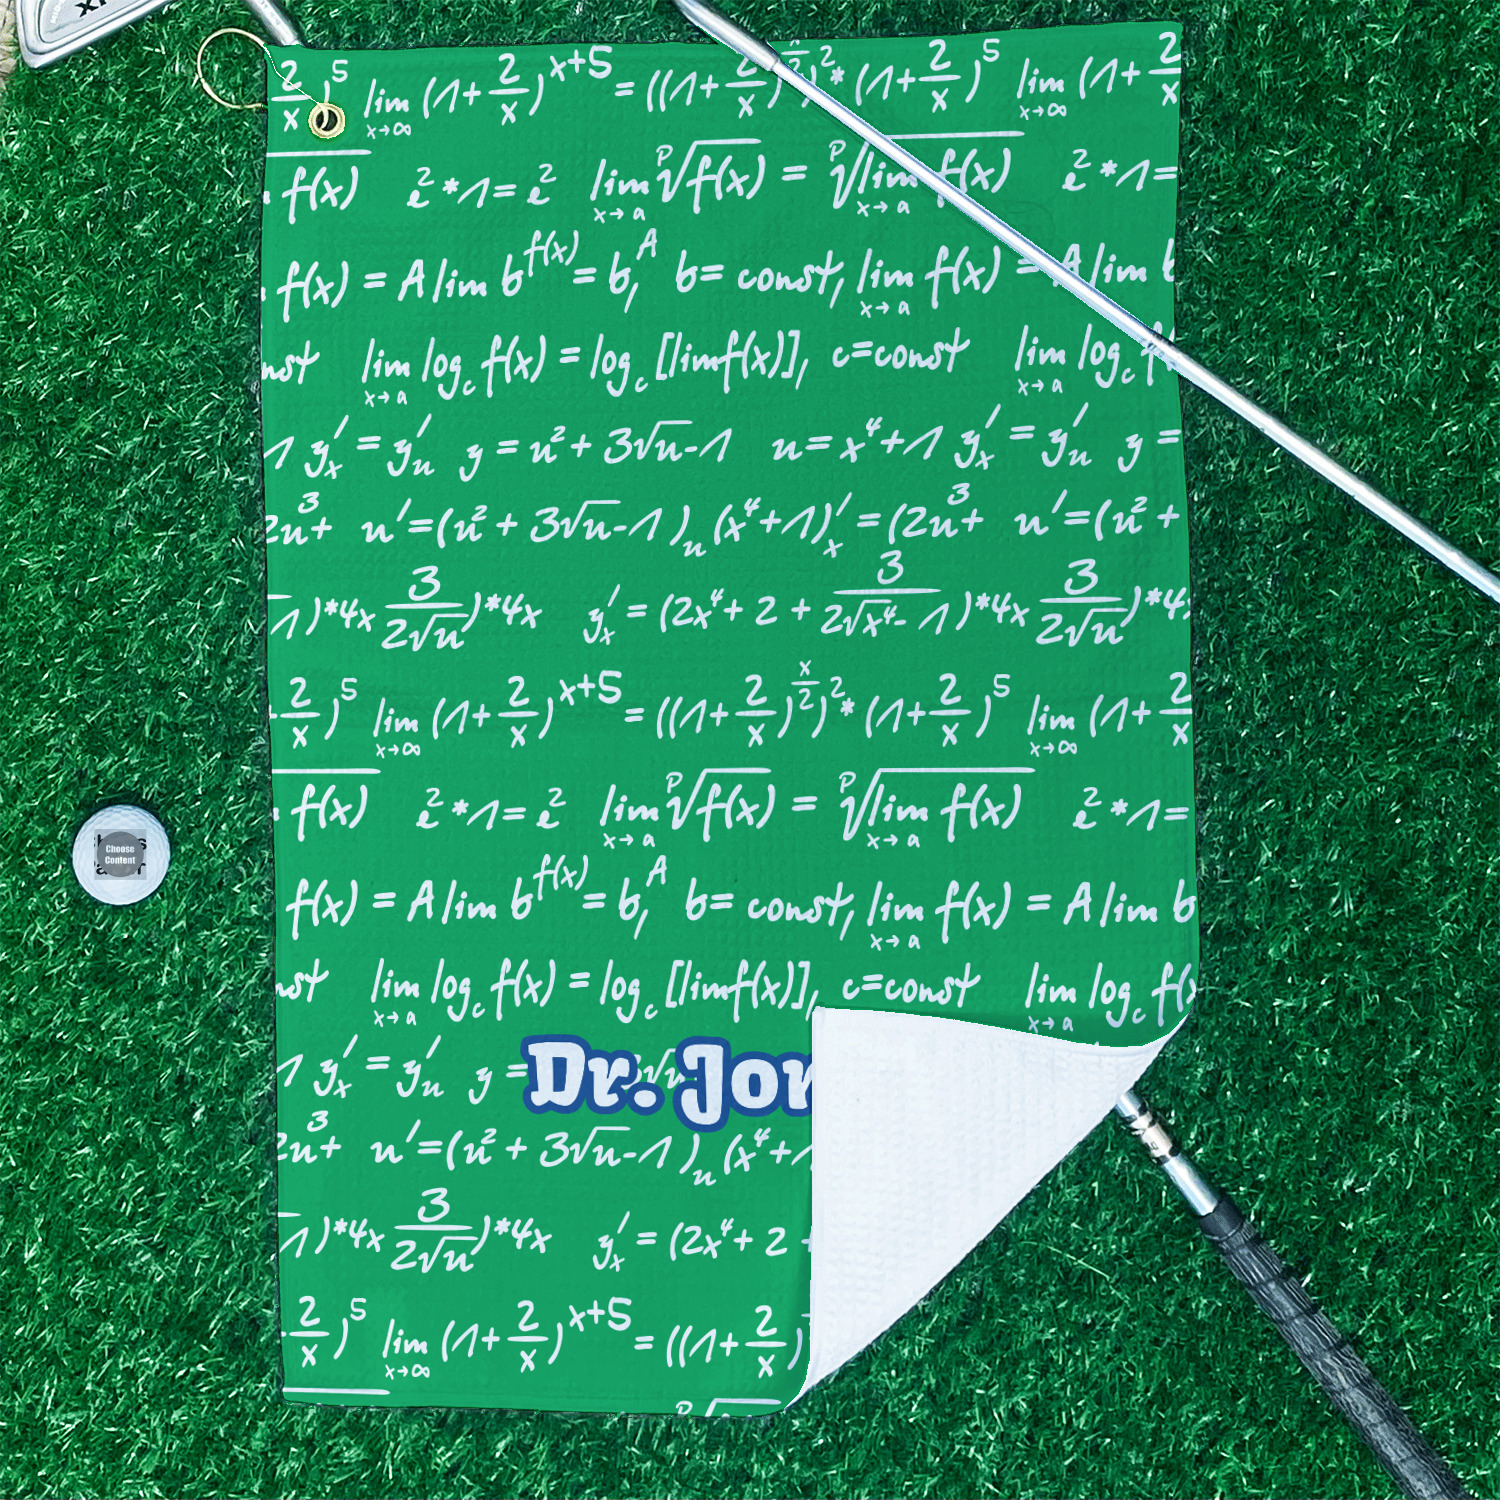 2/x)⁵ lim x→∞ (1+2/x)^x+5 = ((1+2/x)^x/2)²* (1+2/x)⁵ lim x→∞ (1+2/x
f(x) e²*1=e² lim x→a ᵖ√f(x) = ᵖ√lim x→a f(x) e²*1=
f(x) = A lim b^f(x) = b,^A b= const, lim x→a f(x) = A lim b
nst lim x→a log_c f(x) = log_c [limf(x)], c=const lim x→a log_c f
1 y'_x = y'_u y = u²+ 3√u-1 u=x⁴+1 y'_x = y'_u y =
2u³+ u'=(u²+ 3√u-1)_u (x⁴+1)'_x =(2u³+ u'=(u²+
1)*4x 3/2√u)*4x y'_x = (2x⁴+ 2 + 3/2√x⁴-1)*4x 3/2√u)*4x
2/x)⁵ lim x→∞ (1+2/x)^x+5 = ((1+2/x)^x/2)²* (1+2/x)⁵ lim x→∞ (1+2/x
f(x) e²*1=e² lim x→a ᵖ√f(x) = ᵖ√lim x→a f(x) e²*1=
f(x) = A lim b^f(x) = b,^A b= const, lim x→a f(x) = A lim b
nst lim x→a log_c f(x) = log_c [limf(x)], c=const lim x→a log_c f(x
1 y'_x = y'_u y = 3√u
Dr. Jon
2u³+ u'=(u²+ 3√u-1)_u (x⁴+1
1)*4x 3/2√u)*4x y'_x = (2x⁴+ 2 +
2/x)⁵ lim x→∞ (1+2/x)^x+5 = ((1+2/x)
p
Choose
Content